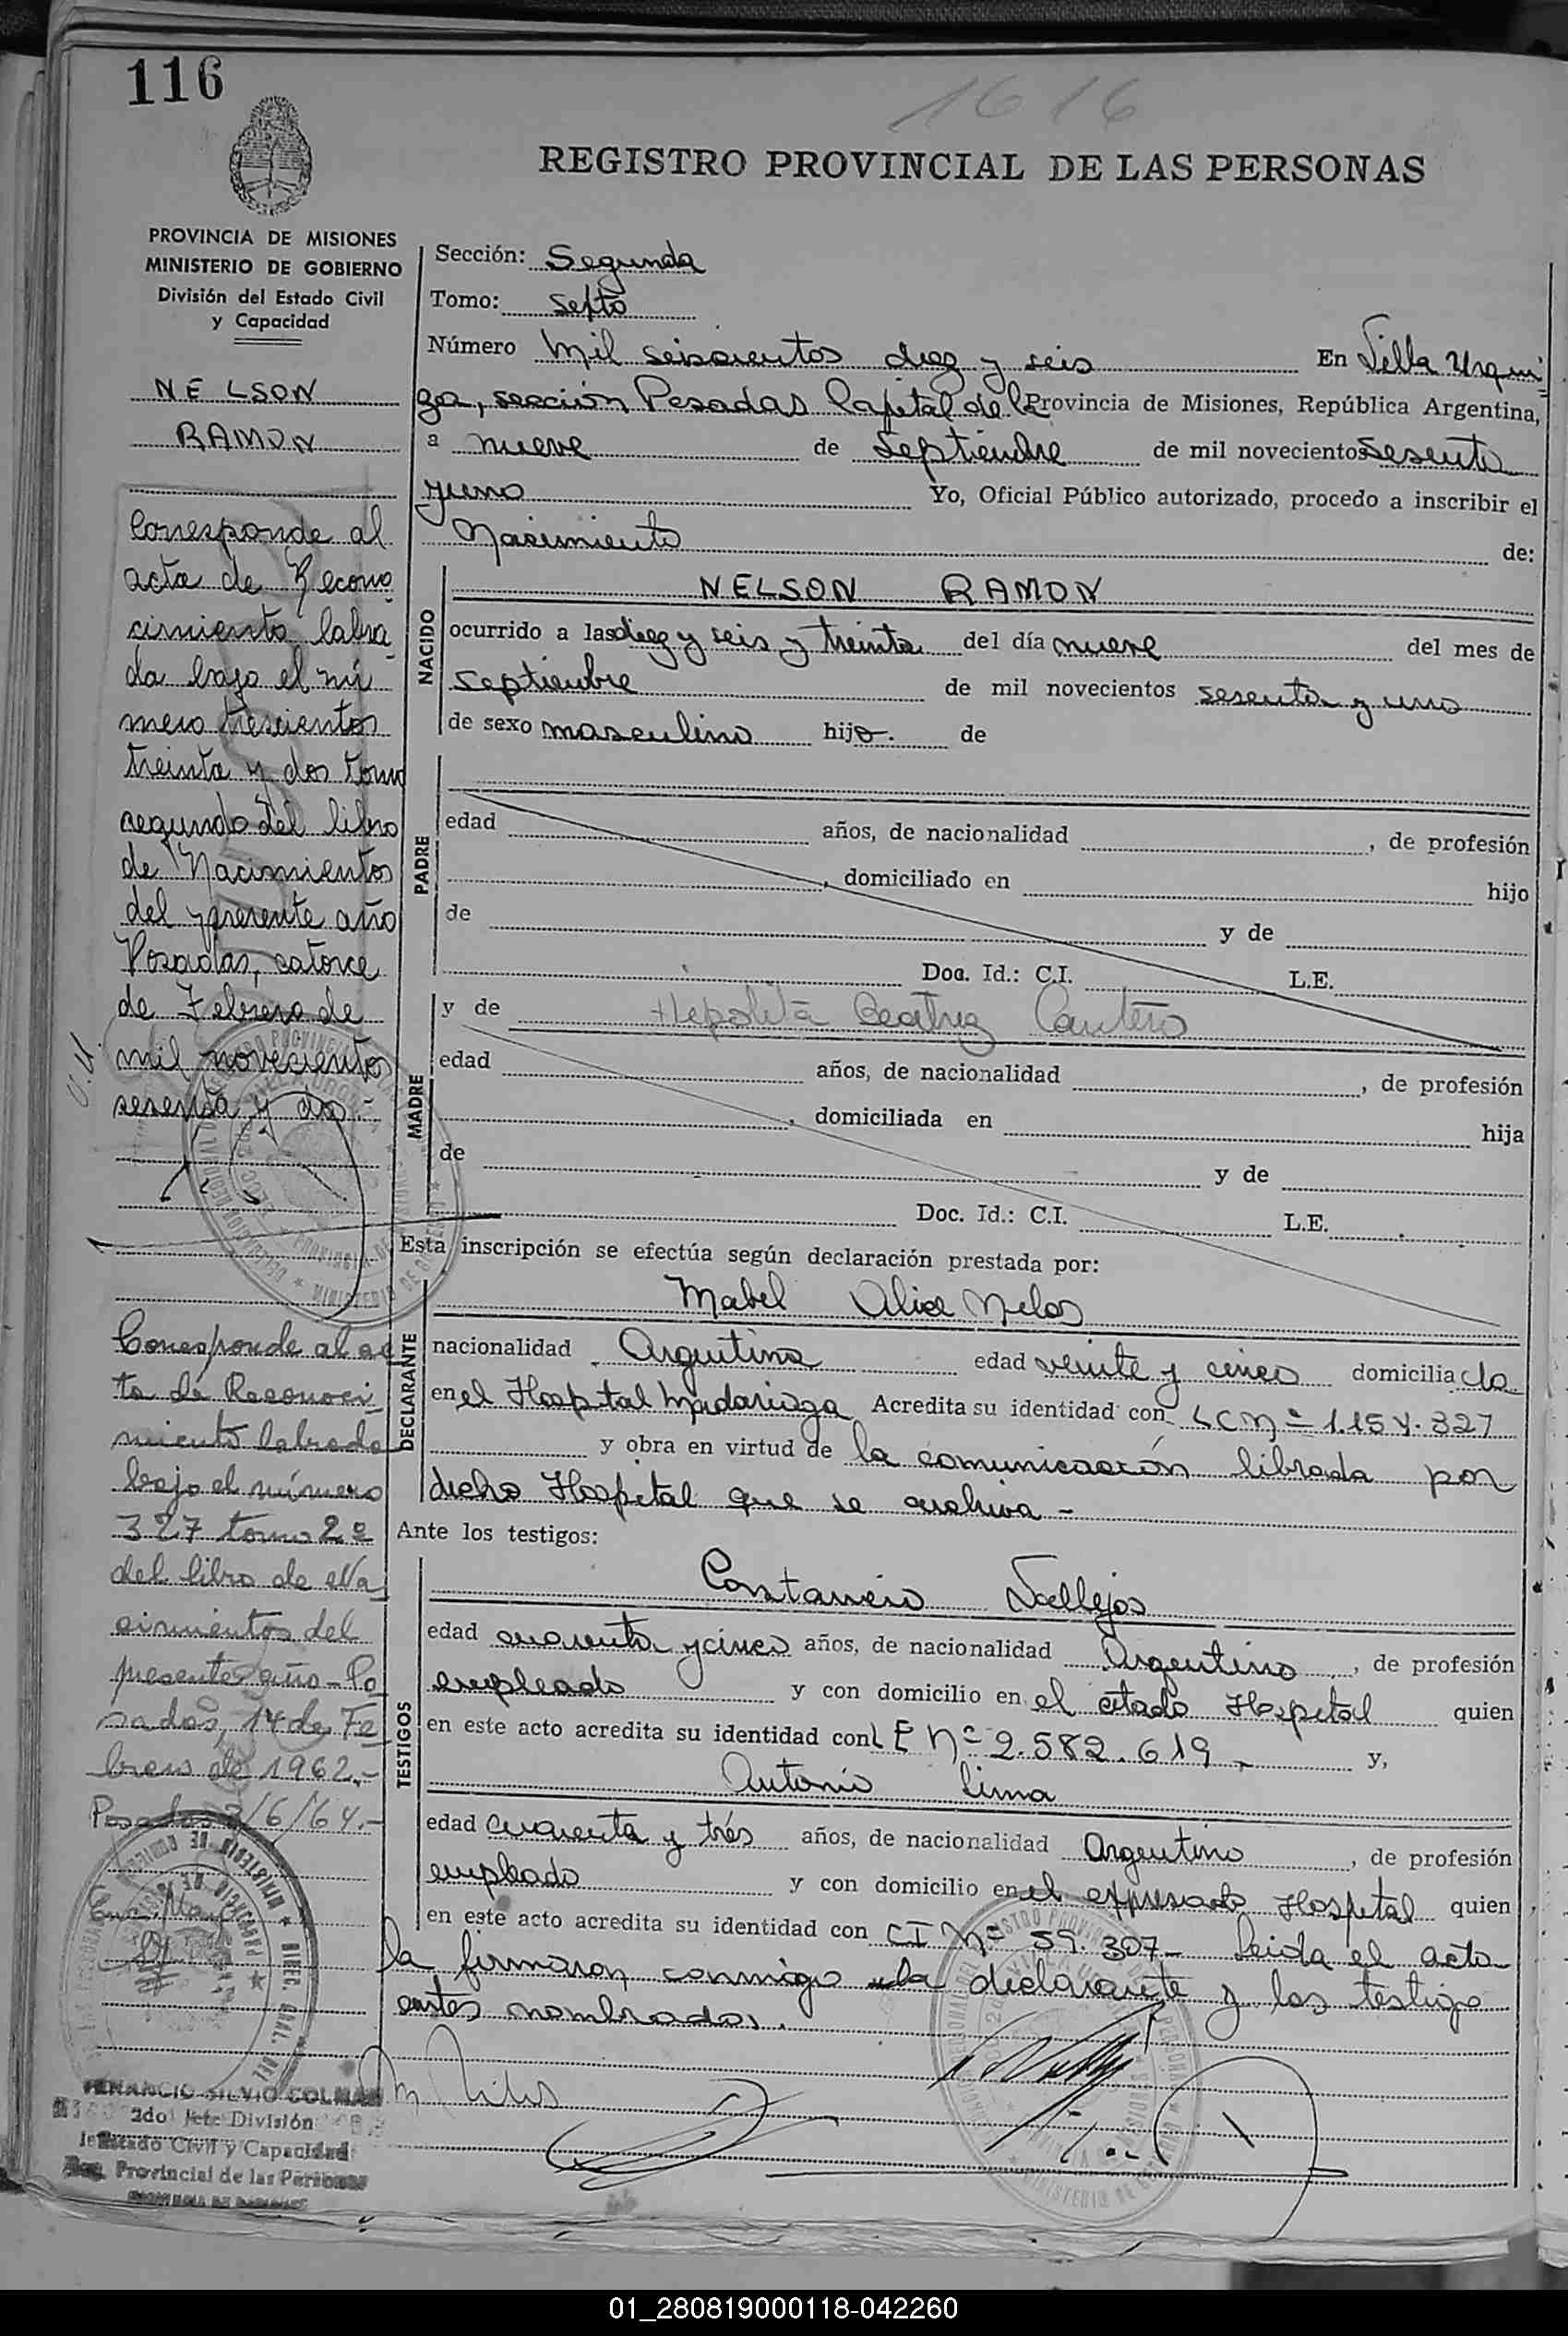 116
1616
REGISTRO PROVINCIAL DE LAS PERSONAS
PROVINCIA DE MISIONES
MINISTERIO DE GOBIERNO
División del Estado Civil
y Capacidad
NELSON
RAMON
Corresponde al
acta de Recono
cimiento labra
da bajo el nú
mero trescientos
treinta y dos tomo
segundo del libro
de Nacimientos
del presente año
Posadas, catorce
de Febrero de
mil novecientos
sesenta y dos.-
Corresponde al ac
ta de Reconoci
miento labrada
bajo el número
327 tomo 2º
del libro de Na
cimientos del
presente año - Po
sadas, 14 de Fe
brero de 1962.-
Posadas 2/6/64.-
VENANCIO SILVIO COLMAN
2do Jefe División
Estado Civil y Capacidad
Reg. Provincial de las Personas
Sección: Segunda
Tomo: Septo
Número Mil seiscientos diez y seis En Villa Urqui
za, sección Posadas Capital de la Provincia de Misiones, República Argentina,
a nueve de Septiembre de mil novecientos sesenta
y uno Yo, Oficial Público autorizado, procedo a inscribir el
Nacimiento de:
NACIDO
NELSON RAMON
ocurrido a las diez y seis y treinta del día nueve del mes de
septiembre de mil novecientos sesenta y uno
de sexo masculino hijo. de
PADRE
edad años, de nacionalidad , de profesión
, domiciliado en hijo
de y de
Doc. Id.: C.I. L.E.
MADRE
y de Hepolita Beatriz Cantero
edad años, de nacionalidad , de profesión
, domiciliada en hija
de y de
Doc. Id.: C.I. L.E.
Esta inscripción se efectúa según declaración prestada por:
DECLARANTE
Mabel Alice
nacionalidad Argentina edad veinte y cinco domiciliada
en el Hospital Madariaga Acredita su identidad con LC Nº 1.154.327
y obra en virtud de la comunicación librada por
dicho Hospital que se archiva -
Ante los testigos:
TESTIGOS
Vallejos
edad cuarenta y cinco años, de nacionalidad Argentino , de profesión
empleado y con domicilio en el citado Hospital quien
en este acto acredita su identidad con LE Nº 2.582.619 y,
Antonio Lima
edad cuarenta y trés años, de nacionalidad Argentino , de profesión
empleado y con domicilio en el expresado Hospital quien
en este acto acredita su identidad con CI Nº 59.307 - Leida el acta
la firmaron conmigo la declarante y los testigo
antes nombrados.
01_280819000118-042260